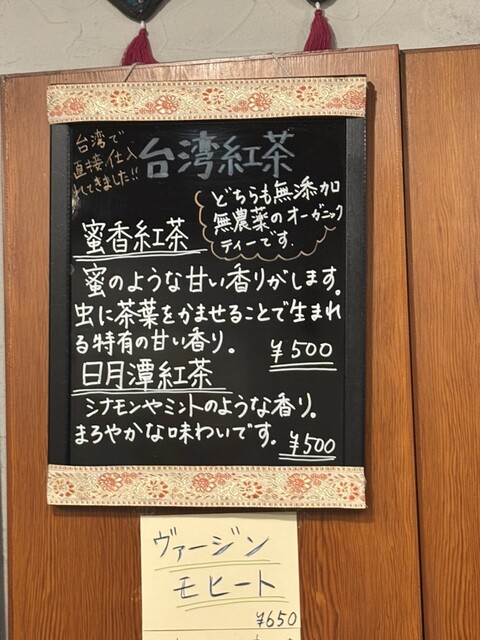 台湾で
直接仕入
れてきました!!
台湾紅茶
どちらも無添加
無農薬のオーガニック
ティーです.
蜜香紅茶
蜜のような甘い香りがします。
虫に茶葉をかませることで生まれ
る特有の甘い香り。
¥500
日月潭紅茶
シナモンやミントのような香り。
まろやかな味わいです.
¥500
ヴァージン
モヒート
¥650